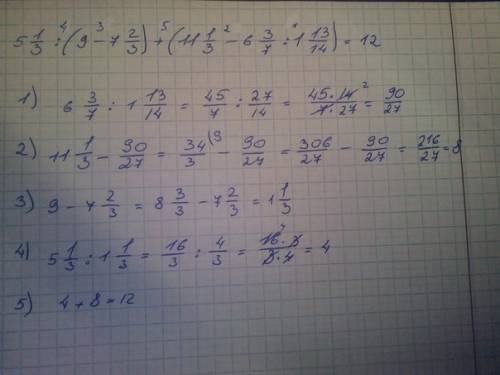 5 1/3 :⁴ (9 -³ 7 2/3) +⁵ (11 1/3 -² 6 3/7 :¹ 1 13/14) = 12
1) 6 3/7 : 1 13/14 = 45/7 : 27/14 = 45·14²/7·27 = 90/27
2) 11 1/3 - 90/27 = 34/3 (9 - 90/27 = 306/27 - 90/27 = 216/27 = 8
3) 9 - 7 2/3 = 8 3/3 - 7 2/3 = 1 1/3
4) 5 1/3 : 1 1/3 = 16/3 : 4/3 = 16·3/3·4 = 4
5) 4 + 8 = 12